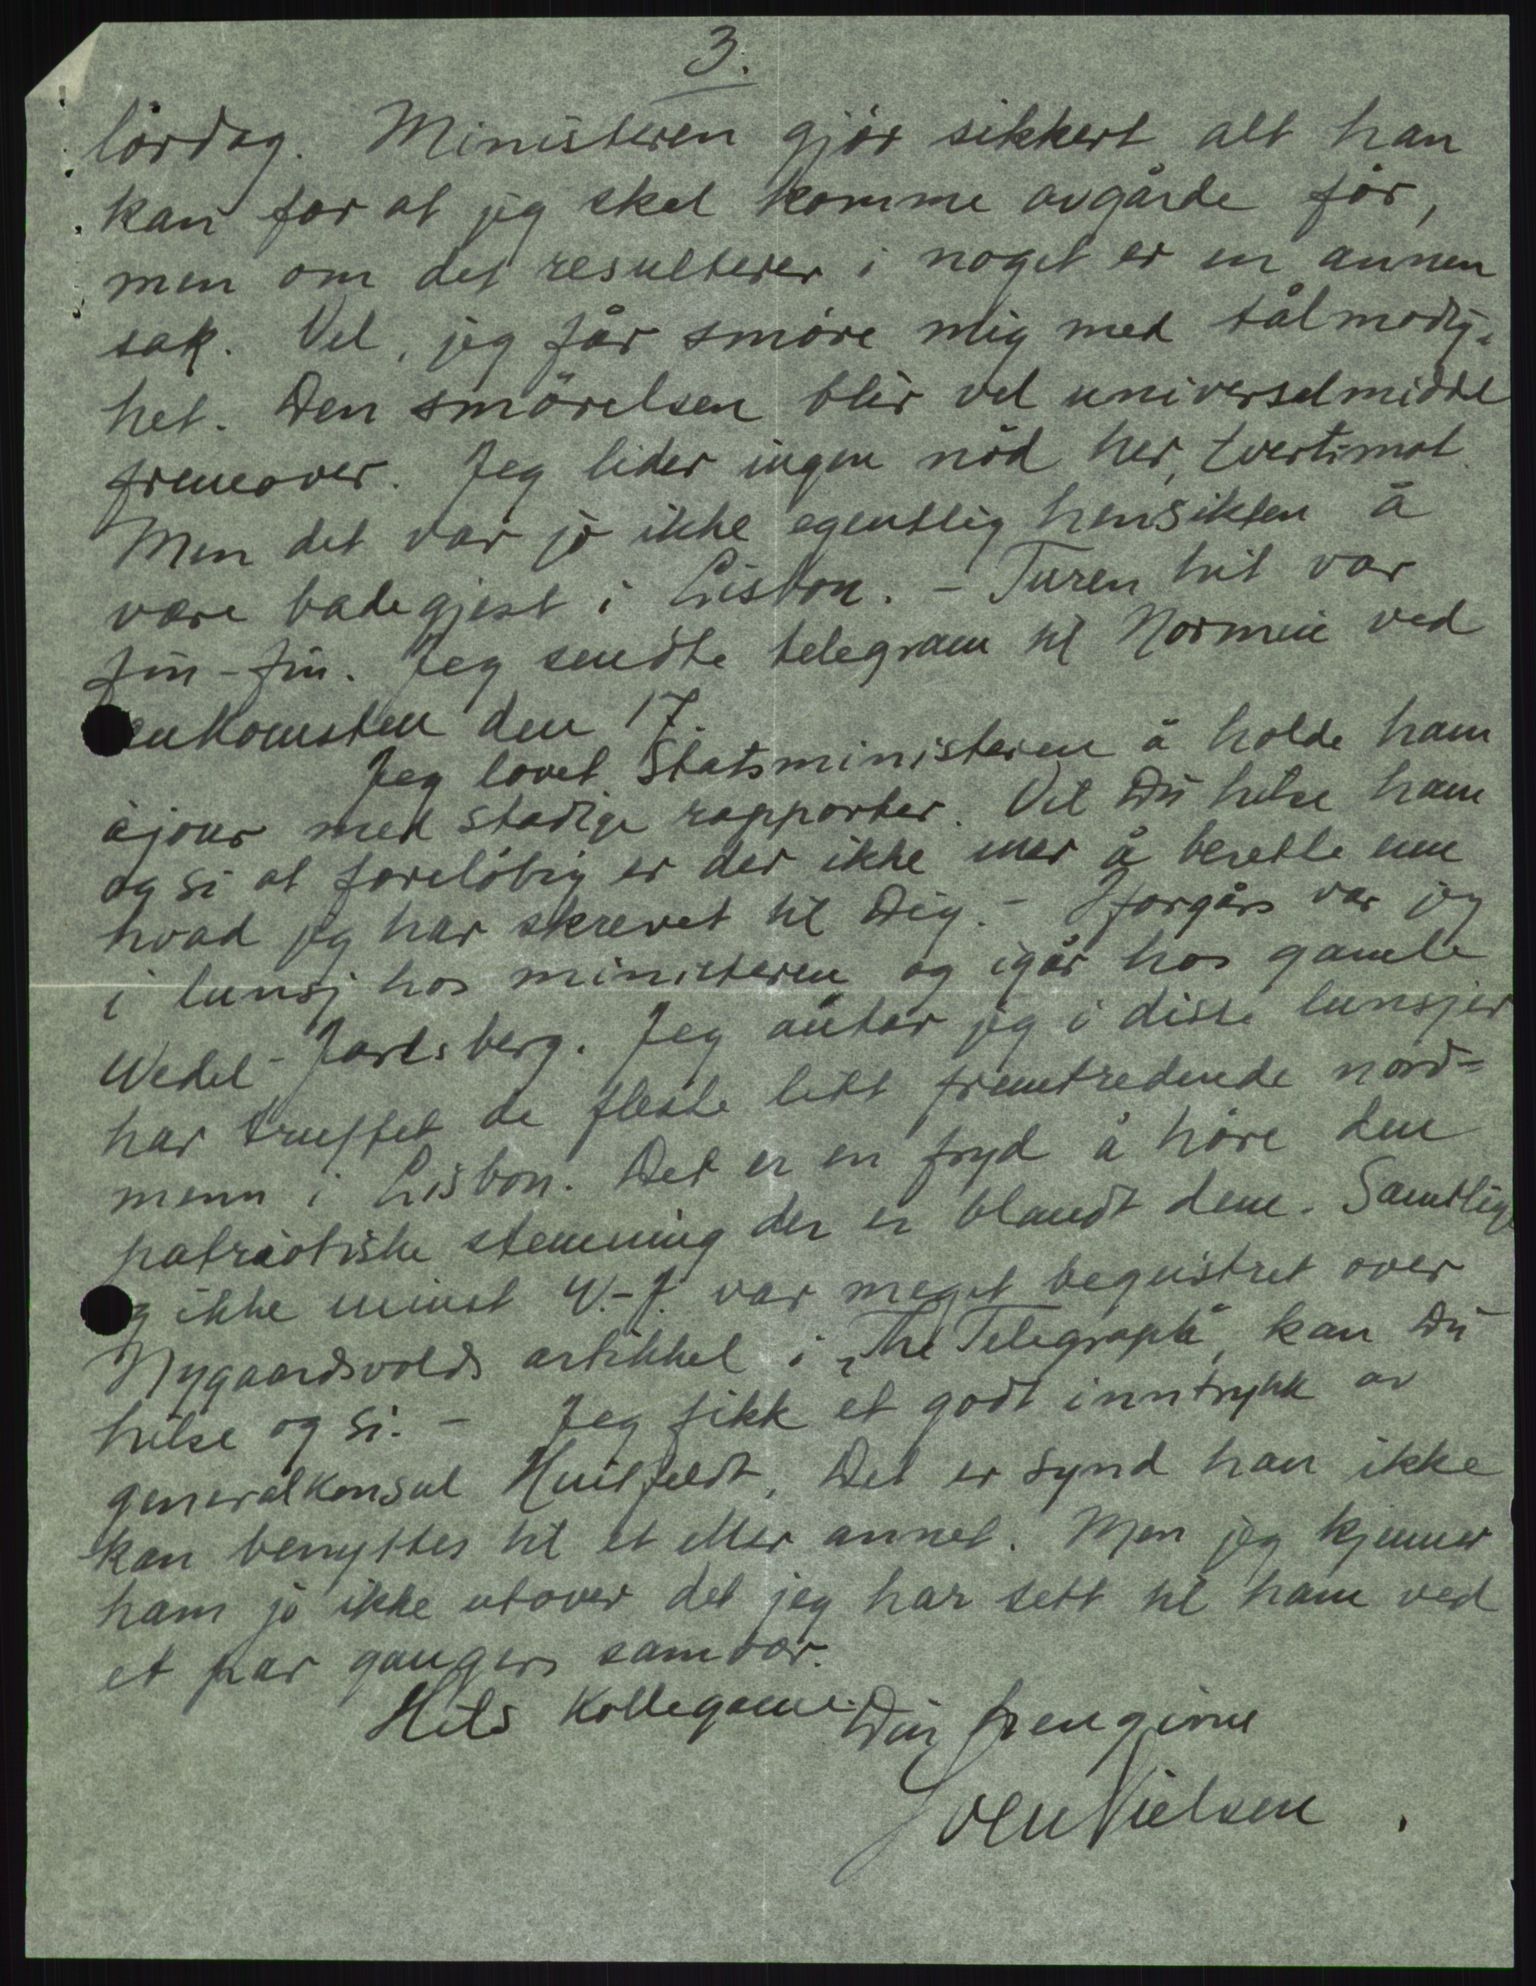 3.
lördag. Ministeren gjör sikkert alt han
kan for at jeg skal komme avgårde för,
men om det resulterer i noget er en annen
sak. Vel, jeg får smöre mig med tålmodig-
het. Den smörelsen blir vel universalmiddel
fremover. Jeg lider ingen nöd her, tvertimot.
Men det var jo ikke egentlig hensikten å
være badegjest i Lisbon. - Turen hit var
fin-fin. Jeg sendte telegram til Normin ved
ankomsten den 17.
Jeg lovet Statsministeren å holde ham
àjour med stadige rapporter. Vil Du hilse ham
og si at forelöbig er der ikke mer å berette enn
hvad jeg har skrevet til Dig. - Iforgårs var jeg
i lunsj hos ministeren og igår hos gamle
Wedel-Jarlsberg. Jeg antar jeg i disse lunsjer
har truffet de fleste litt fremtredende nord-
menn i Lisbon. Det er en fryd å höre den
patriotiske stemning der er blandt dem. Samtlige
og ikke minst W.-J. var meget begeistret over
Nygaardsvolds artikkel i „The Telegraph", kan Du
hilse og si. - Jeg fikk et godt inntrykk av
generalkonsul Huitfeldt. Det er synd han ikke
kan benyttes til et eller annet. Men jeg kjenner
ham jo ikke utover det jeg har sett til ham ved
et par gangers samvær.
Hils kollegaene. Din hengivne
Sven Nielsen.